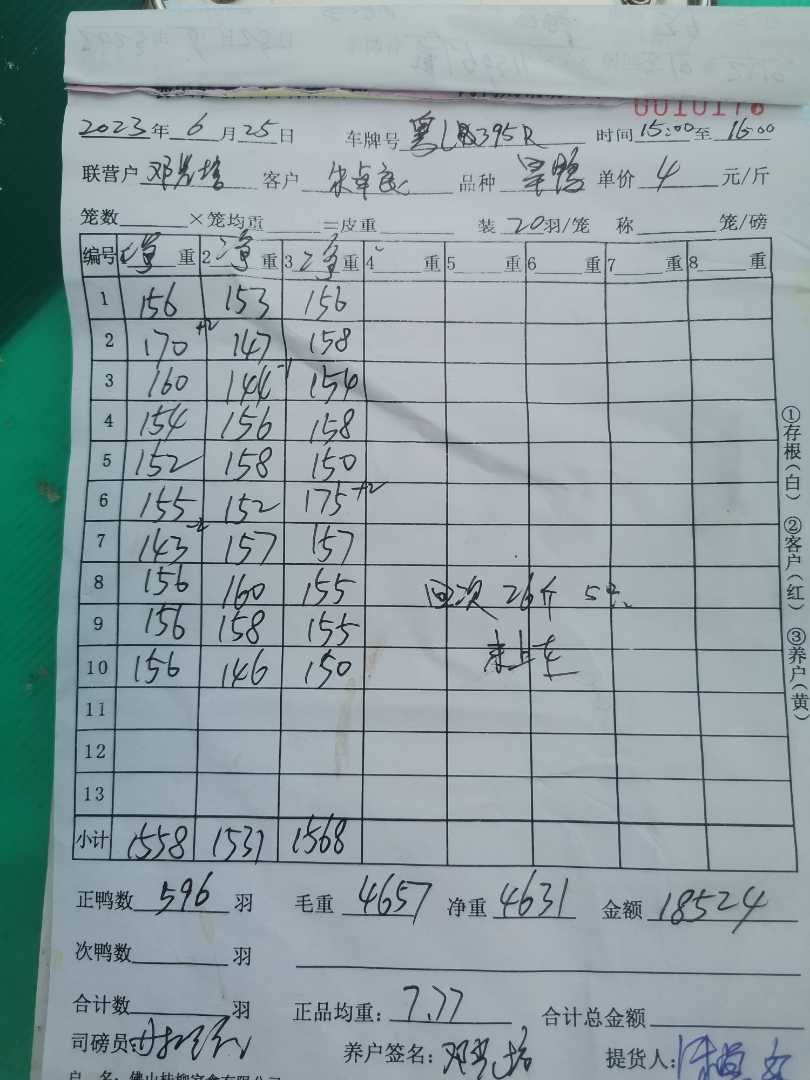 0010176
2023年6月25日 车牌号 粤L 395R 时间15:00至16:00
联营户 邓 培 客户 朱卓良 品种 单价 4 元/斤
笼数 ×笼均重 =皮重 装 20羽/笼 称 笼/磅
编号 净重 2净重 3净重 4 重 5 重 6 重 7 重 8 重
1 156 153 156
2 170+2 147 158
3 160 144-1 154
4 154 156 158
5 152 158 150
6 155 152 175+2
7 143-2 157 157
8 156 160 155 回次 26斤 5只
9 156 158 155 未上车
10 156 146 150
11
12
13
小计 1558 1531 1568
正鸭数 596 羽 毛重 4657 净重 4631 金额 18524
次鸭数 羽
合计数 羽 正品均重: 7.77 合计总金额
司磅员: 养户签名: 邓 培 提货人:
①存根(白) ②客户(红) ③养户(黄)